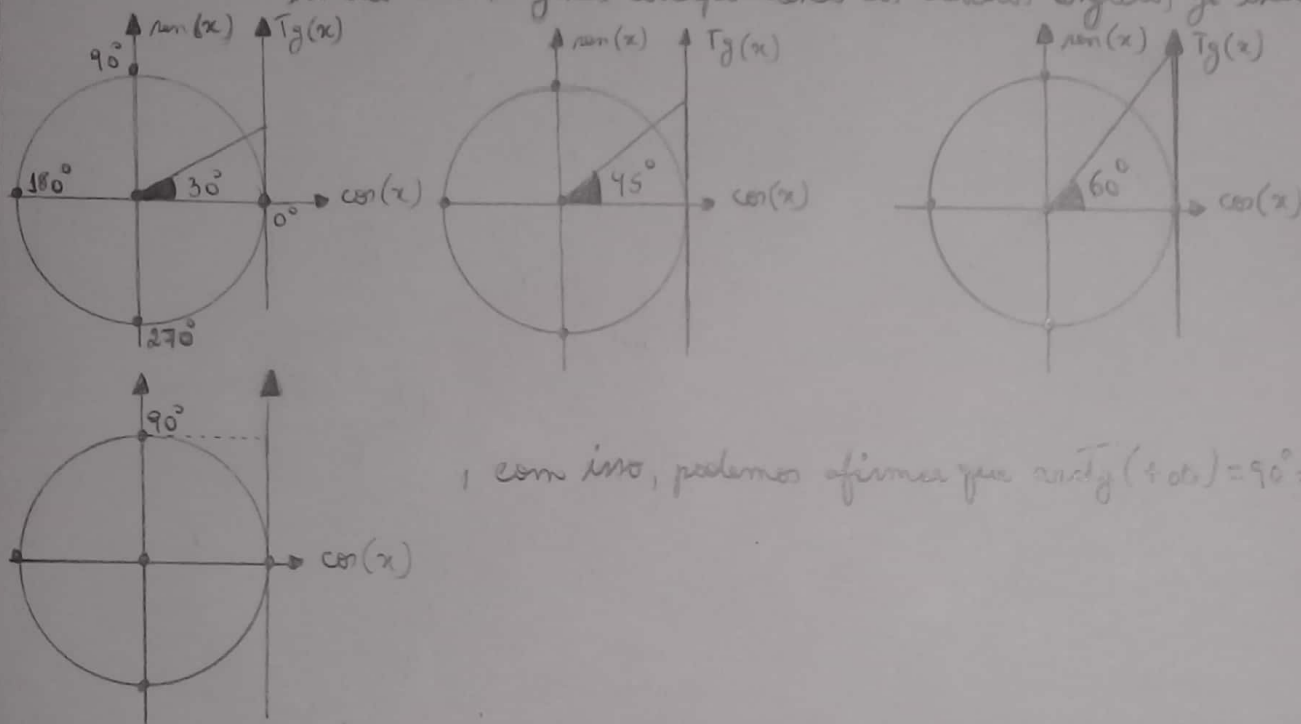 sen(x) Tg(x)
90°
180° 30° cos(x)
0°
270°
sen(x) Tg(x)
45° cos(x)
sen(x) Tg(x)
60° cos(x)
90°
cos(x)
, com isso, podemos afirmar que (+∞) = 90°